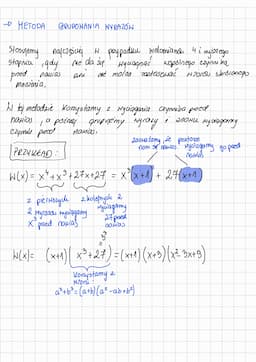 → METODA GRUPOWANIA WYRAZÓW
Stosujemy najczęściej w przypadku wielomianów 4 i wyższego
stopnia, gdy nie da się wyciągnąć wspólnego czynnika
przed nawias ani nie można zastosować wzorów skróconego
mnożenia.
W tej metodzie korzystamy z wyciągania czynnika przed
nawias, a potem grupujemy wyrazy i znowu wyciągamy
czynnik przed nawias.
zauważamy, że powtarza
nam się nawias wyciągamy go przed
nawias
PRZYKŁAD:
W(x) = x⁴ + x³ + 27x + 27 = x³(x+1) + 27(x+1)
z pierwszych z kolejnych 2
2 wyrazów wyciągamy wyciągamy
x³ przed nawias 27 przed
nawias
3³
W(x) = (x+1)(x³+27) = (x+1)(x+3)(x²-3x+9)
korzystamy z
wzoru:
a³+b³=(a+b)(a²-ab+b²)